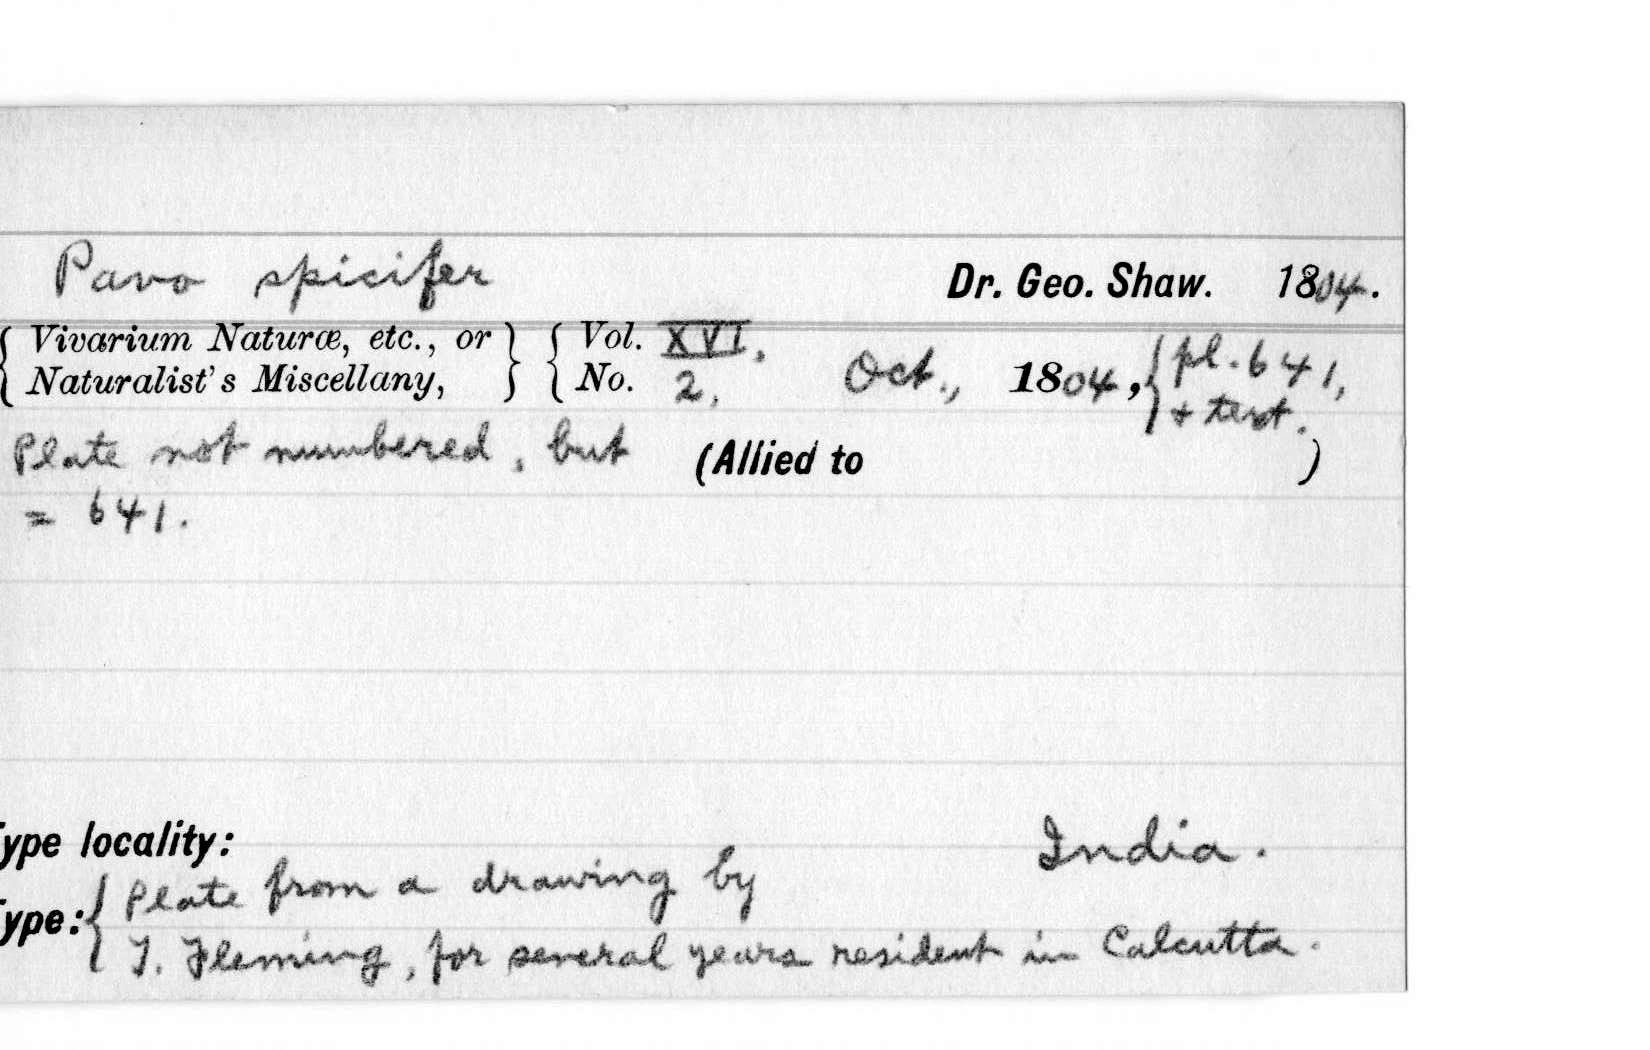 Pavo spicifer Dr. Geo. Shaw. 1804.
{ Vivarium Naturæ, etc., or } { Vol. XVI, Oct., 1804, { pl. 641,
{ Naturalist's Miscellany, } { No. 2, + text.
Plate not numbered, but (Allied to )
= 641.
Type locality: India.
Type: { Plate from a drawing by
J. Fleming, for several years resident in Calcutta.